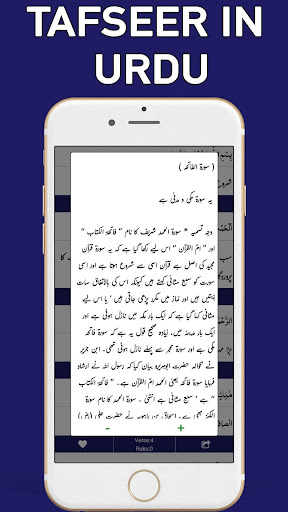 TAFSEER IN
URDU
( سورۃ الفاتحہ )
یہ سورۃ مکی و مدنی ہے
وجہ تسمیہ * سورۃ الحمد شریف کا نام " فاتحۃ الکتاب
" اور " ام القرآن " اس لیے رکھا گیا ہے کہ یہ سورۃ قرآن
مجید کی اصل ہے قرآن اسی سے شروع ہوتا ہے اور اسی
سورۃ کو سبع مثانی کہتے ہیں کیونکہ اس کی بالاتفاق سات
آیتیں ہیں اور نماز میں مکرر پڑھی جاتی ہیں ' یا اس لیے
کہا گیا ہے کہ ایک بار مکہ میں نازل ہوئی ہے اور
ایک بار مدینہ میں، زیادہ صحیح قول یہ ہے کہ سورۃ فاتحہ
مکی ہے اور سورۃ حجر سے پہلے نازل ہوئی تھی۔ ابن جریر
نے بحوالہ حضرت ابوہریرہ بیان کیا کہ رسول اللہ نے ارشاد
فرمایا سورۃ فاتحہ یعنی الحمد ام القرآن ہے ' فاتحۃ الکتاب
ہے ' سبع مثانی ہے انتہٰی ۔ سورۃ الحمد کا نام سورۃ
الکنز بھی ہے۔ اسحاق بن راہویہ نے حضرت علی (رض)
-
+
Verse:4
Ruku:0